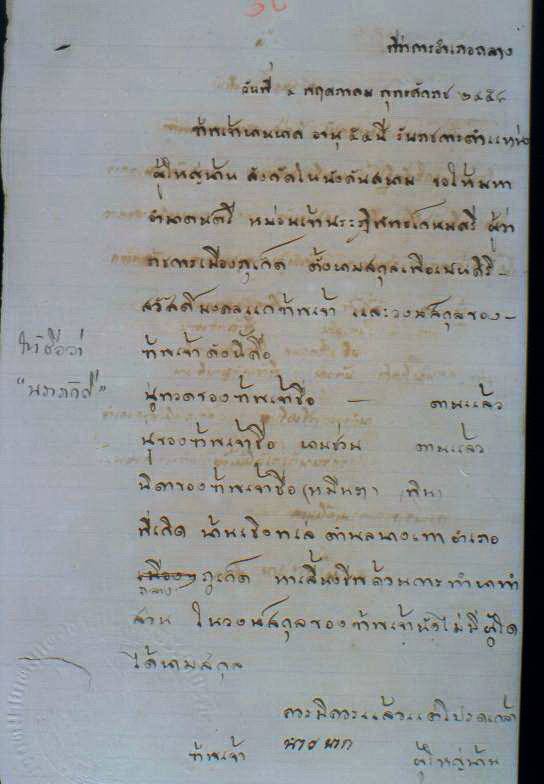 ที่ว่าการอำเภอถลาง
วันที่ พฤษภาคม พุทธศักราช ๒๔๕๘
ข้าพเจ้านายนาค อายุ ๕๔ ปี รับราชการตำแหน่ง
ผู้ใหญ่บ้าน สังกัดในบังคับสยาม ขอให้มหา
อำมาตย์ตรี หม่อมเจ้าประดิพัทธเกษมศรี ผู้ว่า
ราชการเมืองภูเก็ต ตั้งนามสกุลเพื่อเปนศิริ-
สวัสดิมงคลแก่ข้าพเจ้า และวงษ์สกุลของ-
ข้าพเจ้าดังนี้คือ
ให้ชื่อว่า
ปู่ทวดของข้าพเจ้าชื่อ — ตายแล้ว
ปู่ของข้าพเจ้าชื่อ นายช่วย ตายแล้ว
บิดาของข้าพเจ้าชื่อ (หมื่น
ที่เกิด บ้านเชิงทเล ตำบล อำเภอ
เมือง ภูเก็ต หาเลี้ยงชีพด้วยการทำนาทำ
ถลาง
สวน ในวงษ์สกุลของข้าพเจ้ายังไม่มีผู้ใด
ได้นามสกุล
ควรมิควรแล้วแต่โปรดเกล้า
ข้าพเจ้า นาย นาค ผู้ใหญ่บ้าน